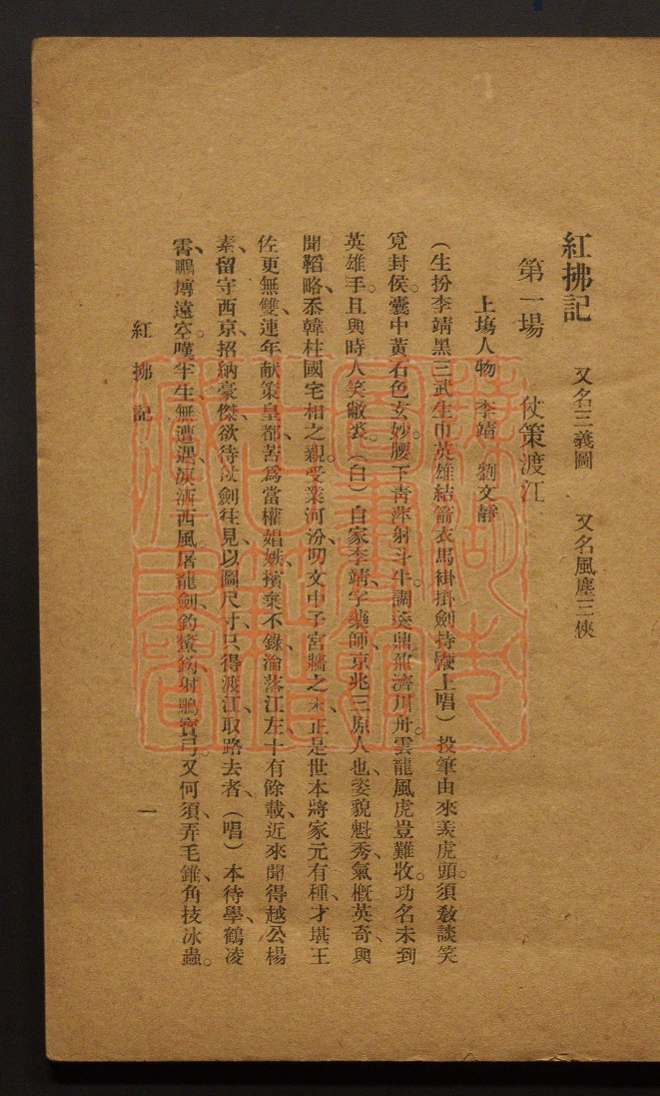 紅拂記 又名三義圖 又名風塵三俠
第一場 仗策渡江
上場人物 李靖 劉文靜
(生扮李靖黑三武生巾英雄結箭衣馬褂掛劍持鞭上唱)投筆由來羨虎頭。須敎談笑
覓封侯。囊中黃石色玄妙。腰下青萍射斗牛。調羹鼎鼐濟川舟。雲龍風虎豈難收。功名未到
英雄手。且與時人笑敝裘。(白)自家李靖、字藥師、京兆三原人也、姿貌魁秀、氣槪英奇、與
聞韜略、忝韓柱國宅相之親。受業河汾、叨文中子宮牆之末、正是世本將家元有種、才堪王
佐更無雙、連年献策皇都、苦爲當權娼嫉、擯棄不錄、淪落江左、十有餘載、近來聞得越公楊
素、留守西京、招納豪傑、欲待仗劍往見、以圖尺寸、只得渡江、取路去者、(唱)本待學、鶴凌
霄、鵬摶遠空。嘆半生、無遭遇、淚洒西風。屠龍劍、釣鰲鈎、射鵰寳弓。又何須、弄毛錐、角技冰蟲。
紅拂記
一